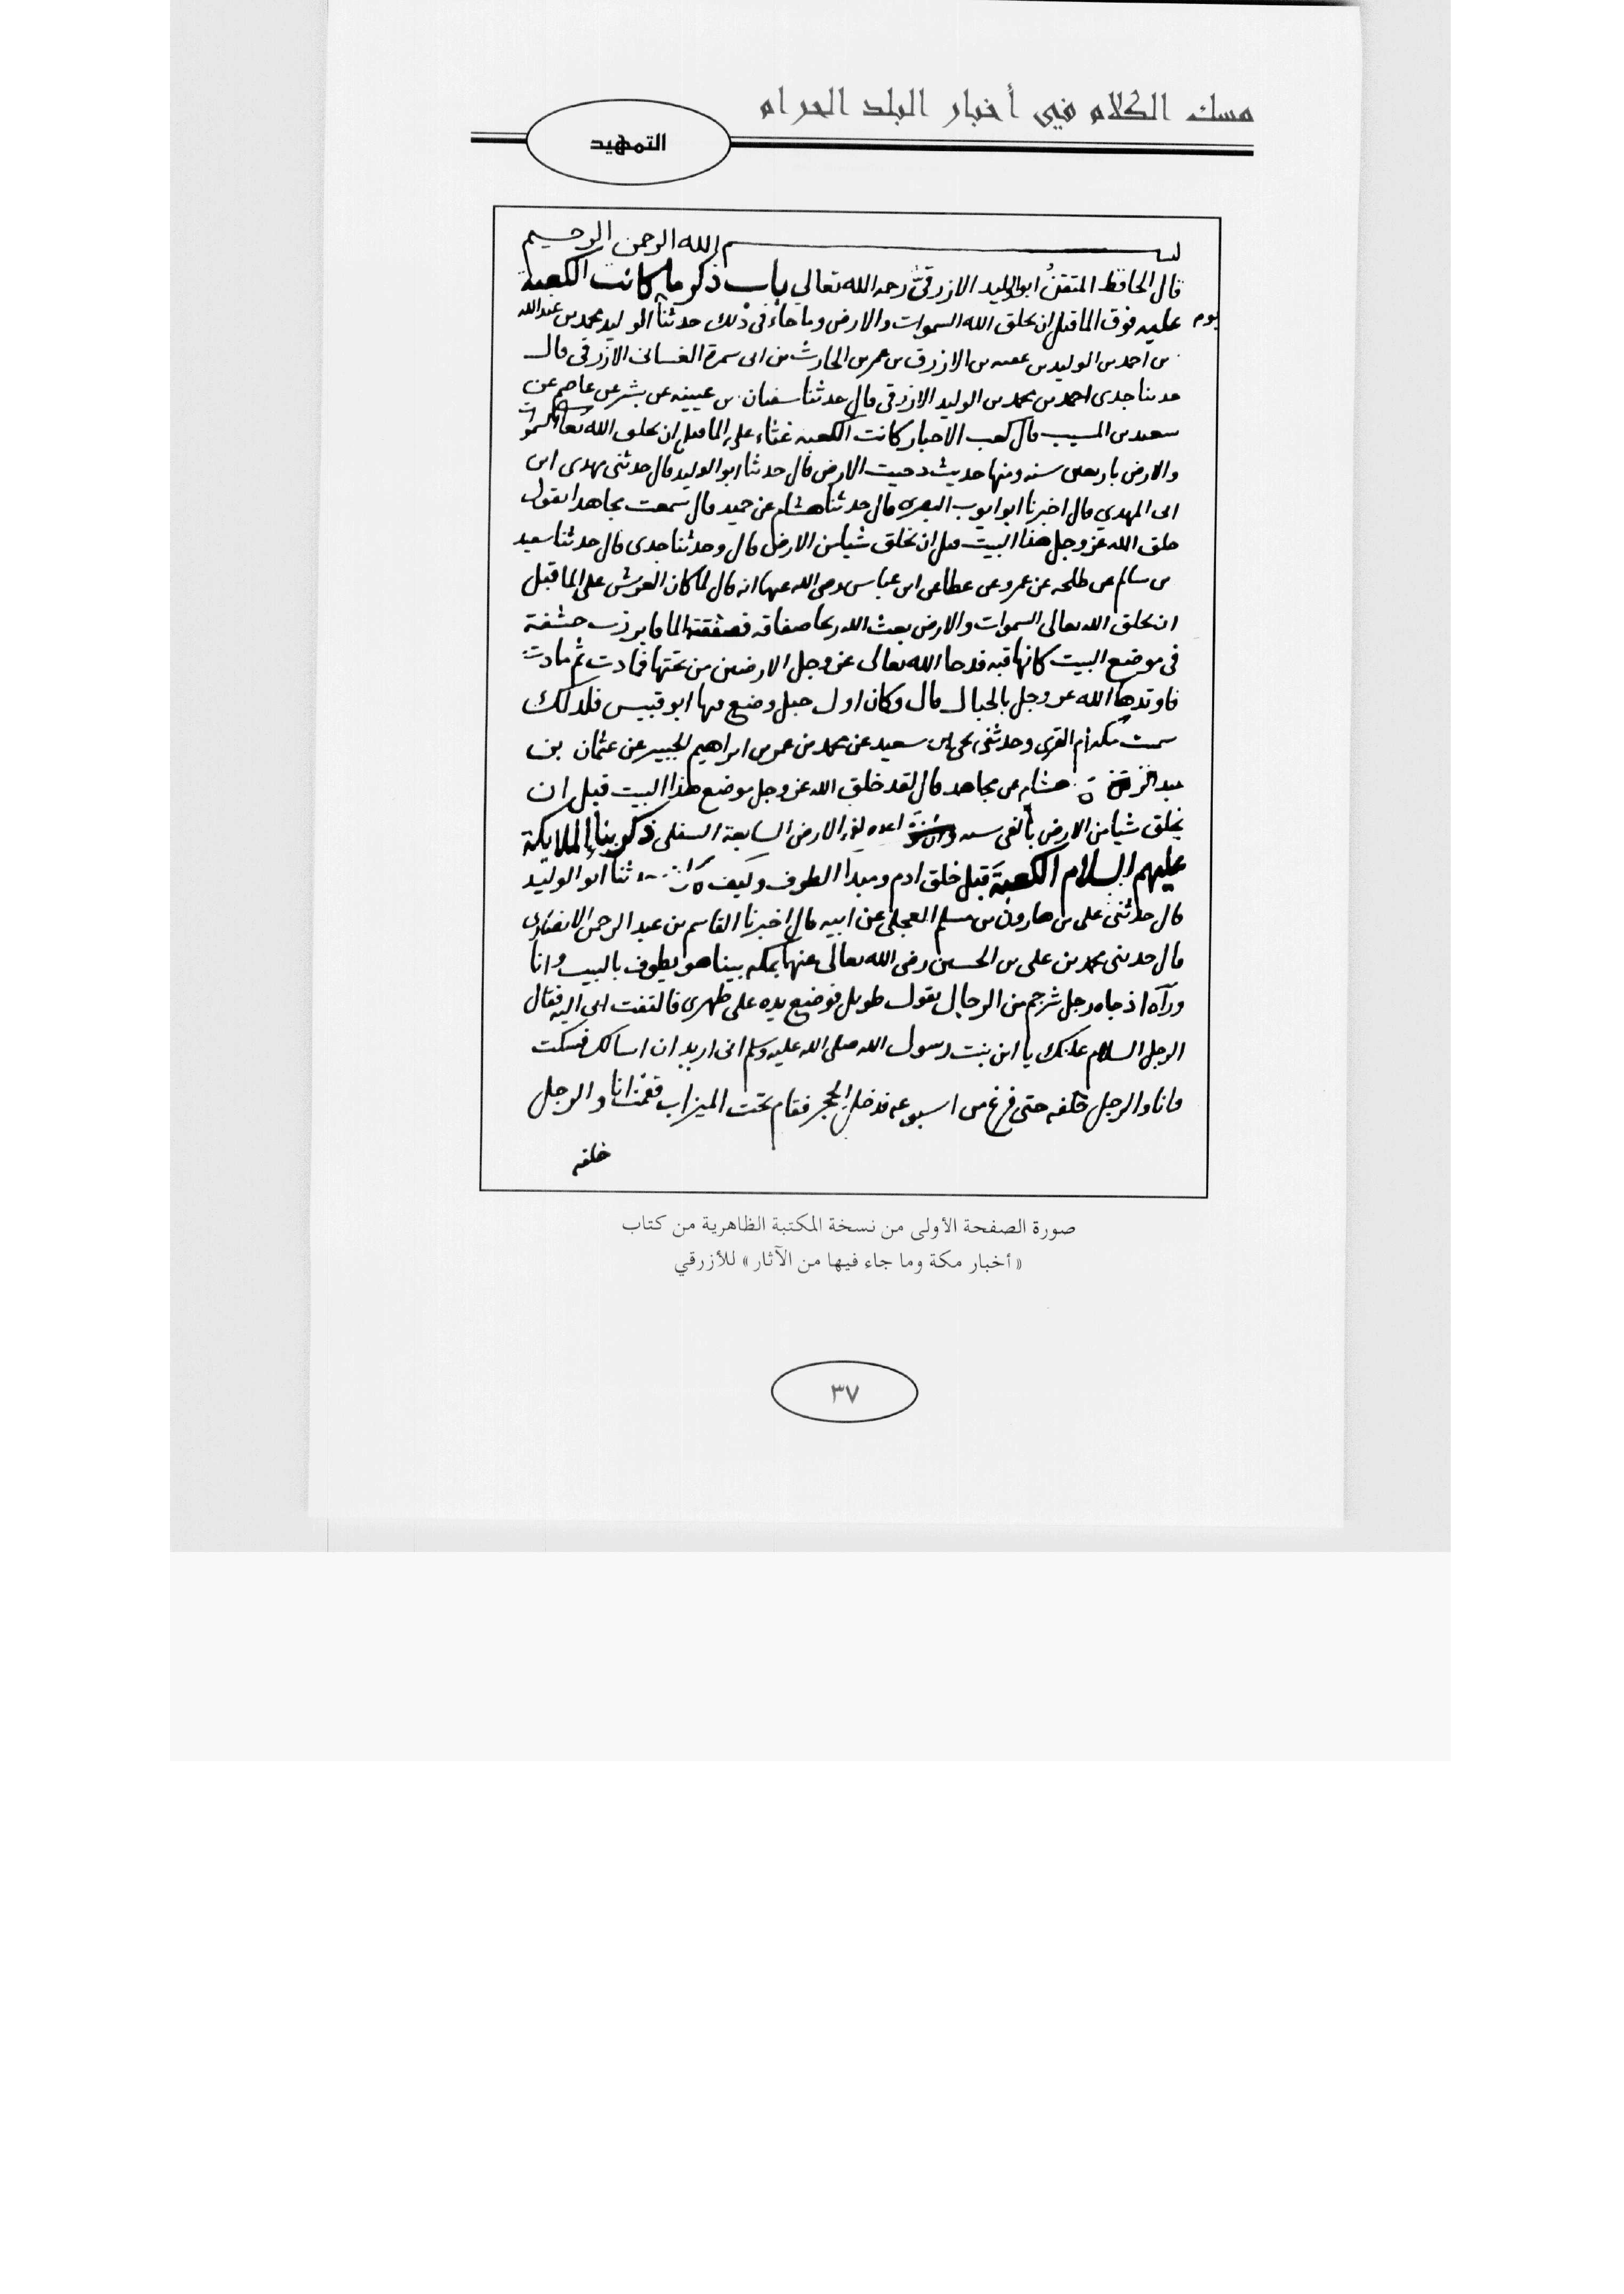 مسك الكلام في أخبار البلد الحرام
التمهيد
بسم الله الرحمن الرحيم
قال الحافظ المتقن ابو الوليد الازرقي رحمه الله تعالي باب ذكر ما كانت الكعبة
عليه فوق الما قبل ان يخلق الله السموات والارض وما جاء في ذلك حدثنا الوليد محمد بن عبد الله
بن احمد بن الوليد بن عقبه بن الازرق بن عمر بن الحارث بن ابى سمرة الغسانى الازرقى قال
حدثنا جدى احمد بن محمد بن الوليد الازرقى قال حدثنا سفيان بن عيينه عن بشر عن عاصم عن
سعيد بن المسيب قال كعب الاحبار كانت الكعبه غثاء على الما قبل ان يخلق الله السموات
والارض باربعين سنه ومنها حديث دحيت الارض قال حدثنا ابو الوليد قال حدثنى مهدى ابن
ابى المهدي قال اخبرنا ابو ايوب البصرى قال حدثنا هشام عن حميد قال سمعت مجاهدا يقول
خلق الله عز وجل هذا البيت قبل ان يخلق شيا من الارض قال وحدثنا جدى قال حدثنا سعيد
بن سالم عن طلحه عن عمرو عن عطا عن ابن عباس رضى الله عنهما انه قال لما كان العرش على الما قبل
ان يخلق الله تعالى السموات والارض بعث الله ريحا صفاقه فصفقت الما فابرزت حشفة
فى موضع البيت كانها قبه فدحا الله تعالى عز وجل الارضين من تحتها فمادت ثم مادت
فاوتدها الله عز وجل بالجبال قال وكان اول جبل وضع فيها ابو قبيس فلذلك
سميت مكه ام القرى وحدثنى يحيى بن سعيد عن محمد بن عمر بن ابراهيم الجبير عن عثمان بن
هشام عن مجاهد قال لقد خلق الله عز وجل موضع هذا البيت قبل ان
يخلق شيا من الارض بالفى سنه لفى الارض السابعة السفلى ذكر بناء الملايكة
عليهم السلام الكعبة قبل خلق ادم ومبدا الطوف وكيف ثنا ابو الوليد
قال حدثنى على بن هارون بن مسلم العجلى عن ابيه قال اخبرنا القاسم بن عبد الرحمن الانصارى
قال حدثنى محمد بن على بن الحسين رضى الله تعالى عنهما بمكه بينا هو يطوف بالبيت وانا
ورآه اذ جاه رجل شرجم من الرجال يقول طويل فوضع يده على ظهرى فالتفت ابى اليه فقال
الرجل السلام عليك يا ابن بنت رسول الله صلى الله عليه وسلم انى اريد ان اسالك فسكت
وانا والرجل خلفه حتى فرغ من اسبوعه فدخل الحجر فقام تحت الميزاب فقمت انا والرجل
خلفه
صورة الصفحة الأولى من نسخة المكتبة الظاهرية من كتاب
« أخبار مكة وما جاء فيها من الآثار » للأزرقي
٣٧